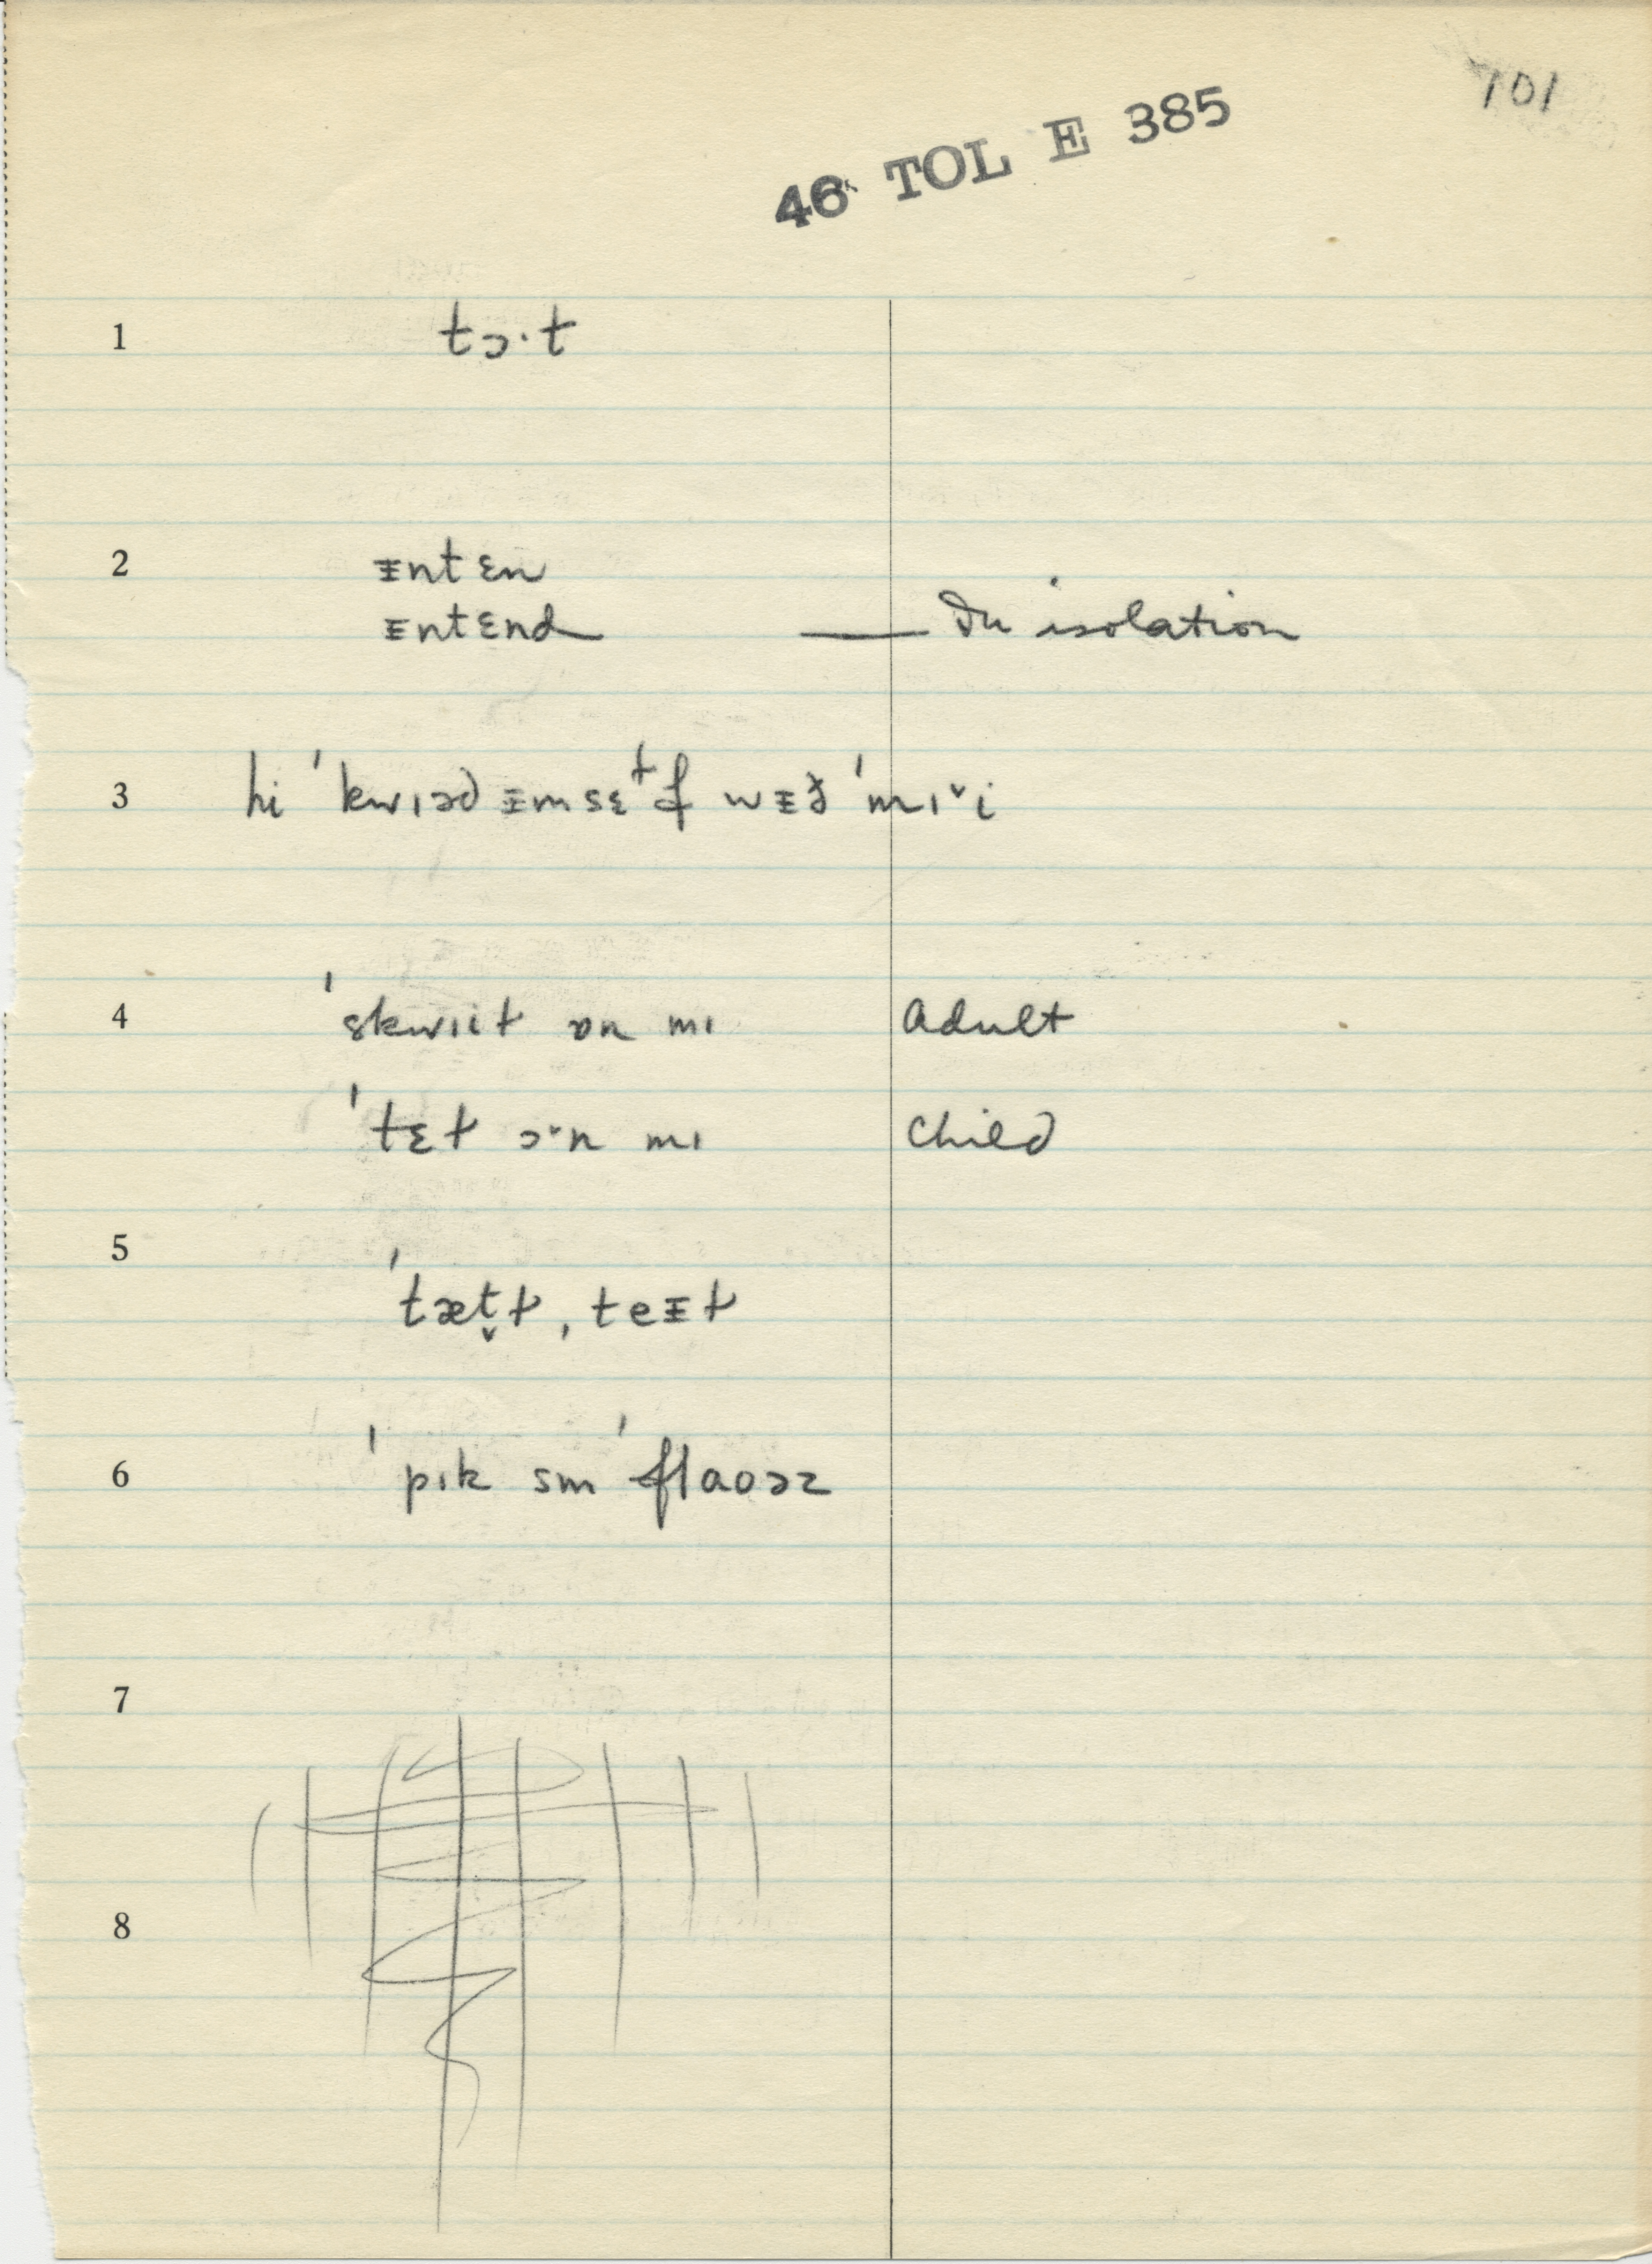 101
46 TOL E 385
1 tɔ·t
2 ᵻntɛn
ᵻntɛnd — In isolation
3 hi ˈkwɪəd ᵻmsɛɫf wᵻð ˈmɪˇi
4 ˈskwɪit ɒn mɪ Adult
ˈtɛt ɔˇn mɪ Child
5 ˈtæt̬ɫ, teᵻɫ
6 ˈpɪk sm ˈflaoəz
7
8